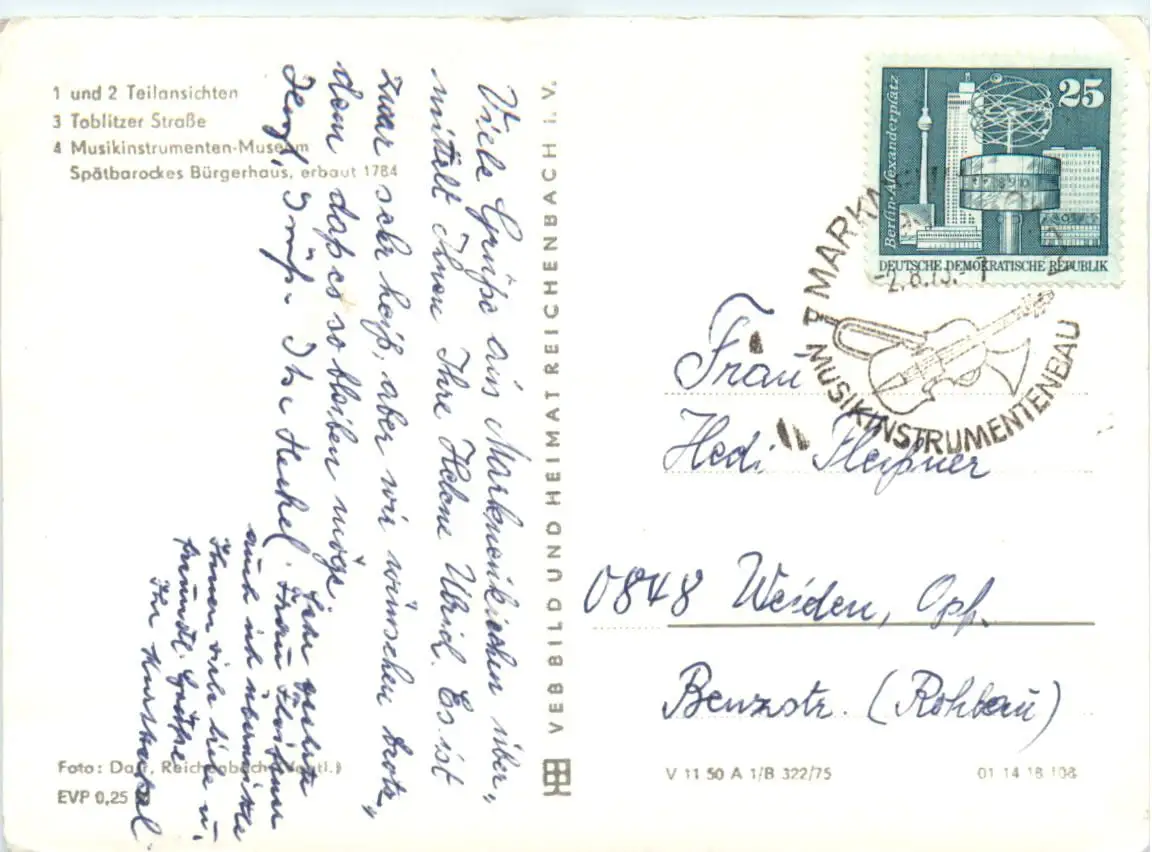 1 und 2 Teilansichten
3 Toblitzer Straße
4 Musikinstrumenten-Museum
Spätbarockes Bürgerhaus, erbaut 1784
Viele Grüße aus Markneukirchen über„
mittelt Ihnen Ihre Helene Uhrid. Es ist
zwar sehr heiß, aber wir wünschen trotz„
dem daß es so bleiben möge.
Herzl. Grüß. Ihr Henkel.
Sehr geehrte
Frau Fleißner
auch ich übermittle
Ihnen viele liebe u.
freundl. Grüße
Ihr
Foto: Darr, Reichenbach (Vogtl.)
EVP 0,25
VEB BILD UND HEIMAT REICHENBACH I. V.
Berlin-Alexanderplatz
25
DEUTSCHE DEMOKRATISCHE REPUBLIK
MARKN
-2.8.75.-7
MUSIKINSTRUMENTENBAU
Frau
Hedi Fleißner
0848 Weiden, Opf.
Benzstr. (Rohbau)
V 11 50 A 1/B 322/75
01 14 18 108